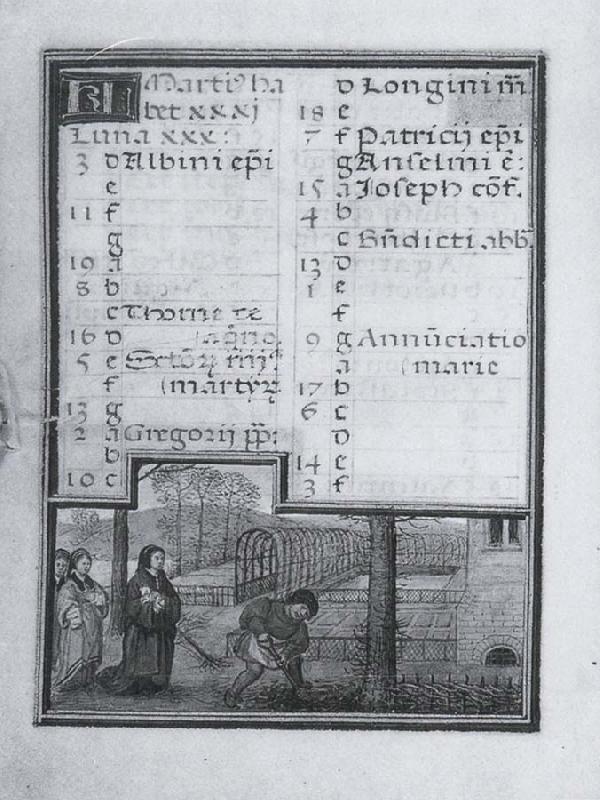 KL Martiꝰ ha
bet xxxj
Luna xxx:
3 d Albini ep̄i
e
11 f
g
19 a
8 b
c Thome de
16 d (aq̄no.
5 e Sctōꝝ
f (martyꝝ
13 g
2 a Gregorij p̄p:
b
10 c
d Longini m̄
18 e
7 f Patricij ep̄i
g Anselmi ē:
15 a Joseph cōf.
4 b
c Bn̄dicti abb.
13 d
1 e
f
9 g Annūciatio
a (marie
17 b
6 c
d
14 e
3 f